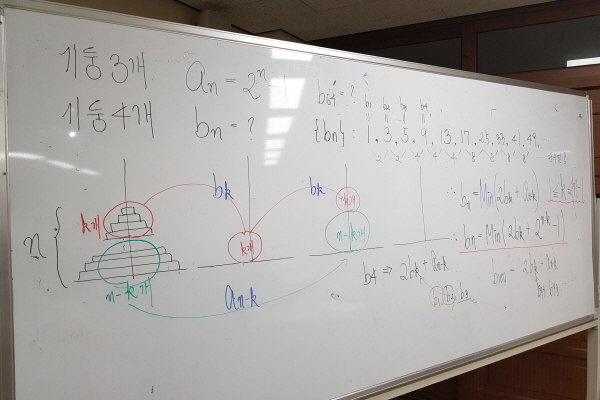 기둥 3개 aₙ = 2ⁿ - 1
기둥 4개 bₙ = ?
b₆₄ = ?
b₁ b₂ b₃ b₄
{bn} : 1, 3, 5, 9, 13, 17, 25, 33, 41, 49,
2 2 4 4 4 8 8 8 8
n { k개
n-k개
bk
k개
bk
k개
n-k개
aₙ₋ₖ
∴ bₙ = Min(2bk + aₙ₋ₖ) 1 ≤ k ≤ n-1
∴ bn = Min(2bk + 2ⁿ⁻ᵏ - 1)
b4 ⇒ 2bk + a₄₋ₖ
b₁, b₂, b₃